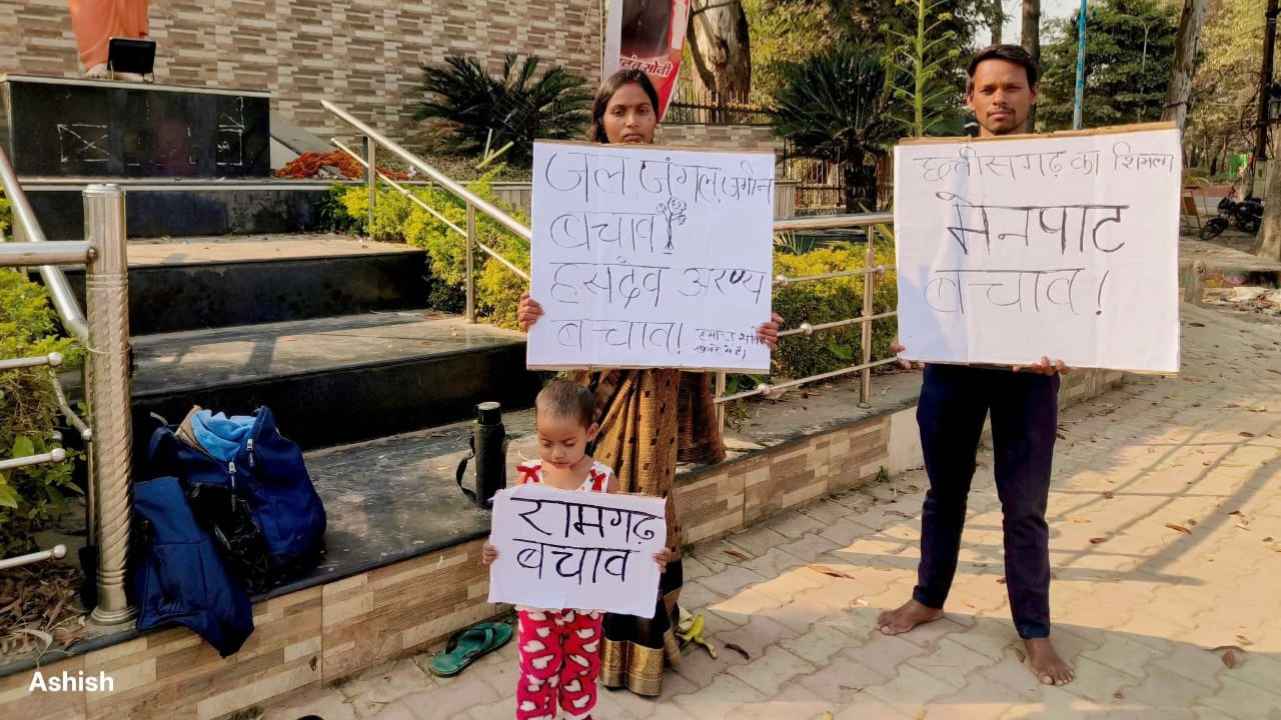 जल जंगल, जमीन
बचाव
हसदेव अरण्य
बचाव!
छत्तीसगढ़ का शिमला
मेनपाट
बचाव!
रामगढ़
बचाव
Ashish